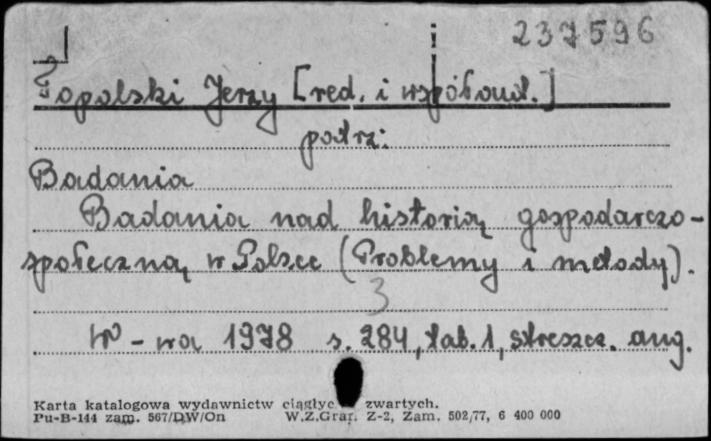 237596
Topolski Jerzy [red. i współaut.]
patrz:
Badania
Badania nad historią gospodarczo-
społeczną w Polsce (Problemy i metody).
3
W-wa 1978 s. 284, tab. 1, streszcz. ang.
Karta katalogowa wydawnictw ciągłyc zwartych.
Pu-B-144 zam. 567/DW/On W.Z.Graf. Z-2, Zam. 502/77, 6 400 000